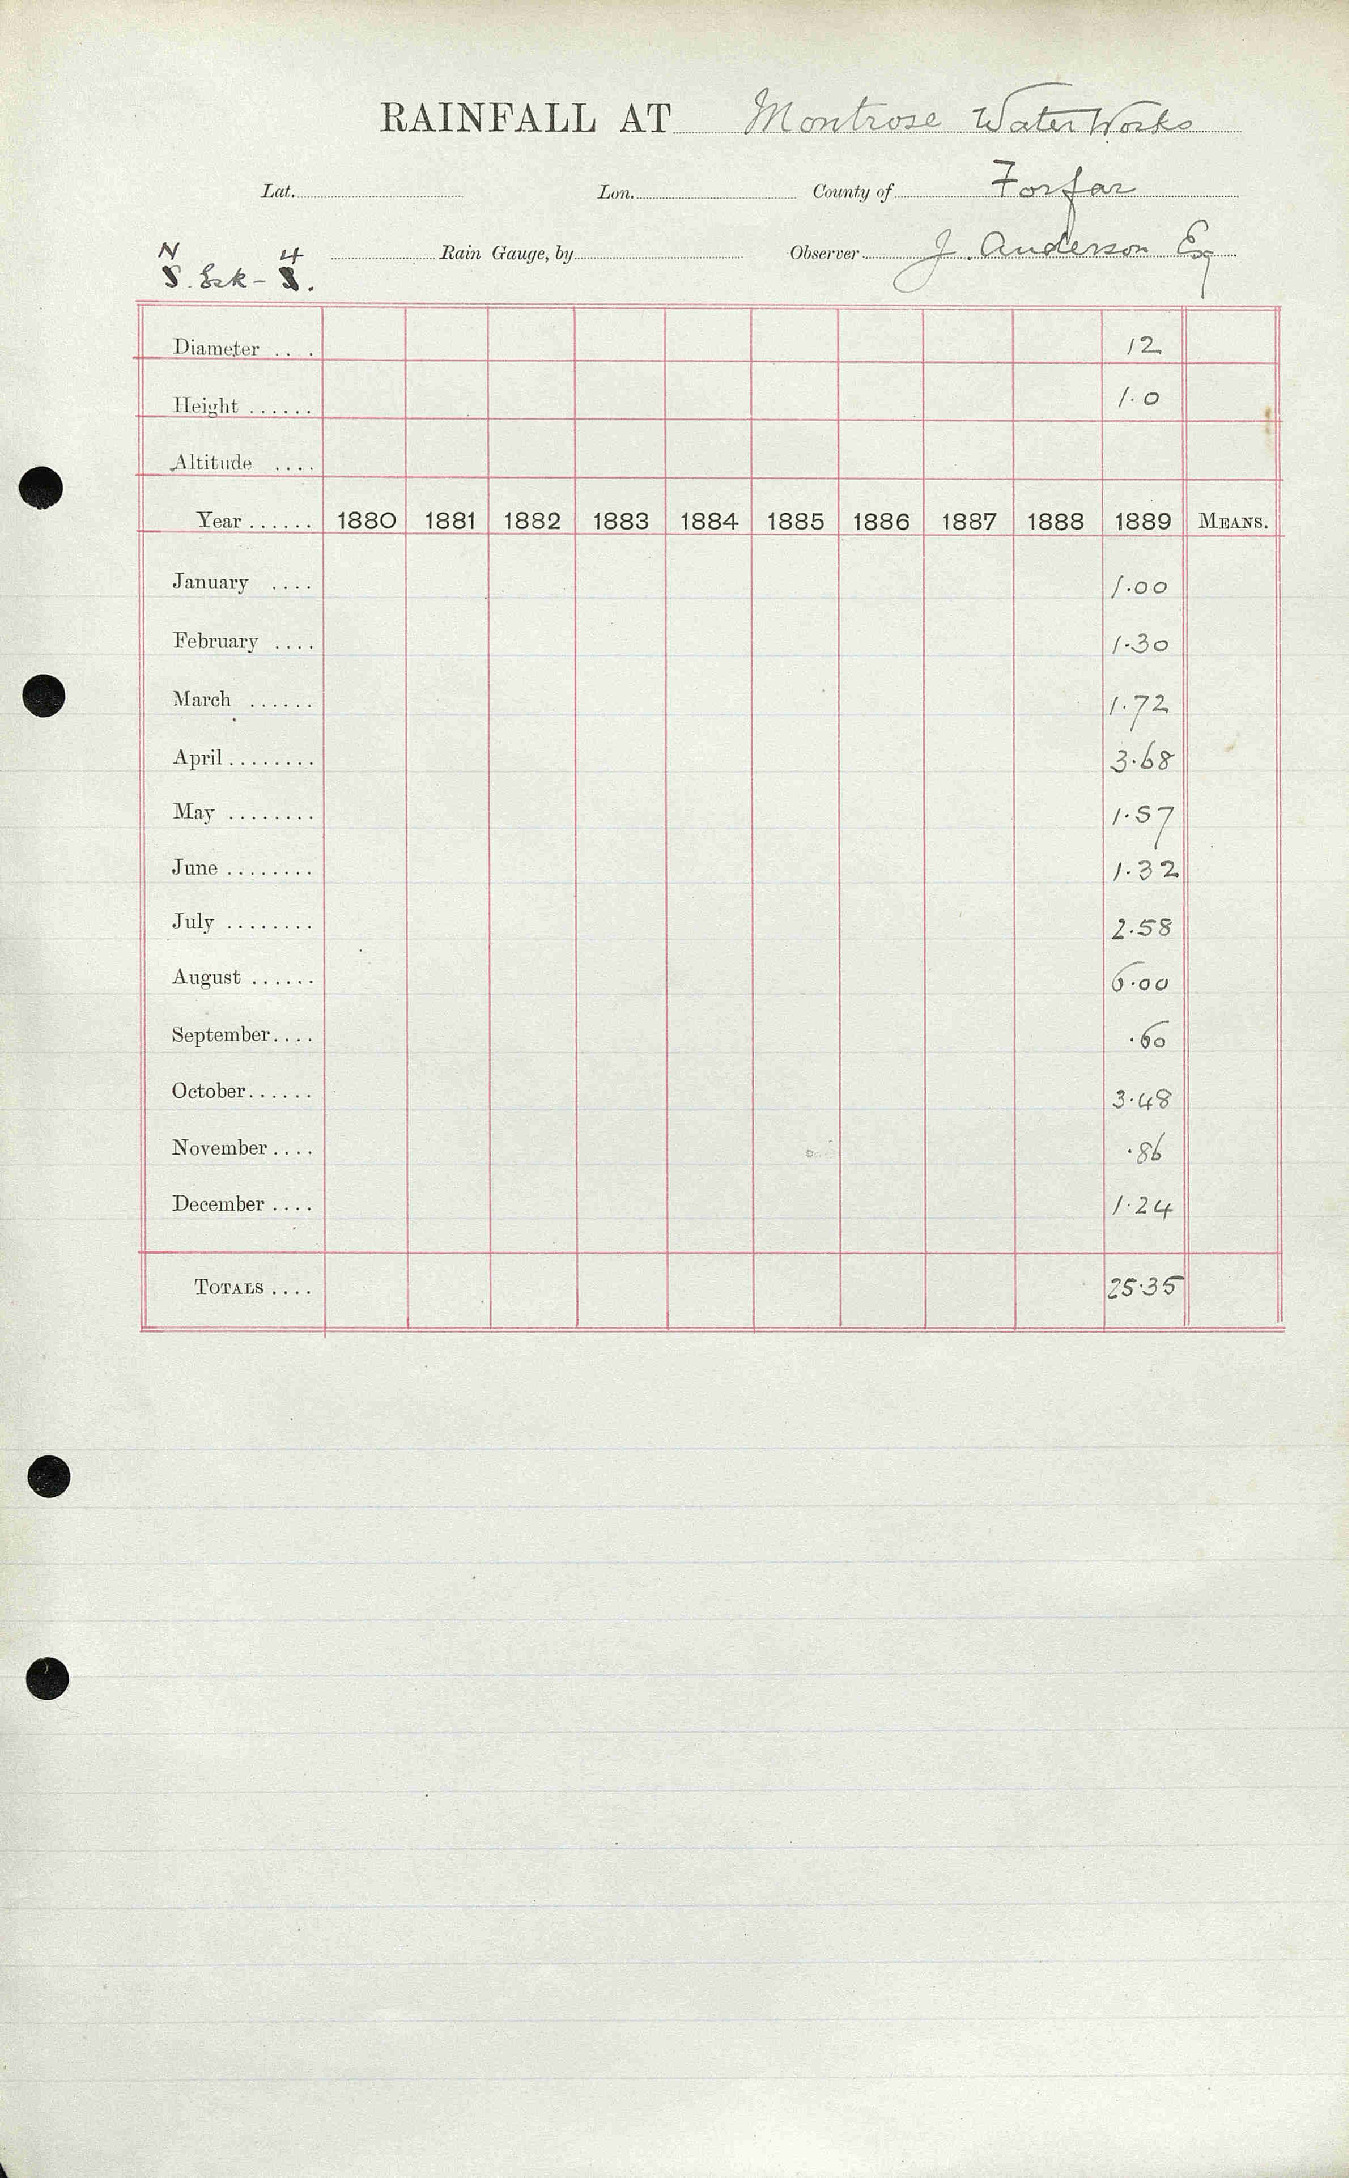 RAINFALL AT Montrose Water Works
Lat. Lon. County of Forfar
N 4 Rain Gauge, by Observer J. Anderson Esq
S. Esk -
Diameter .. . 12
Height ...... 1.0
Altitude ....
Year ...... 1880 1881 1882 1883 1884 1885 1886 1887 1888 1889 MEANS.
January .... 1.00
February .... 1.30
March ...... 1.72
April ........ 3.68
May ........ 1.57
June ........ 1.32
July ........ 2.58
August ...... 6.00
September.... .60
October...... 3.48
November .... .86
December .... 1.24
TOTALS .... 25.35